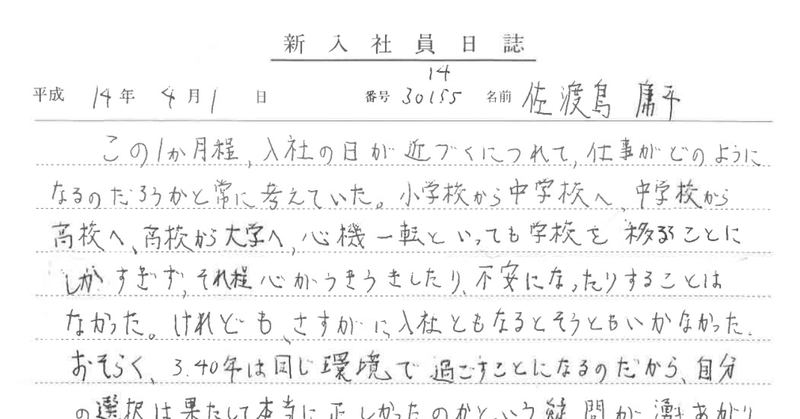 新入社員日誌
14
平成 14年 4月1日 番号 30155 名前 佐渡島 庸平
この1か月程、入社の日が近づくにつれて、仕事がどのように
なるのだろうかと常に考えていた。小学校から中学校へ、中学校から
高校へ、高校から大学へ、心機一転といっても学校を移ることに
しかすぎず、それ程心がうきうきしたり、不安になったりすることは
なかった。けれども、さすがに、入社ともなるとそうともいかなかった。
おそらく、3.40年は同じ環境で過ごすことになるのだから、自分
の選択は果たして本当に正しかったのかという疑問が湧きあがり